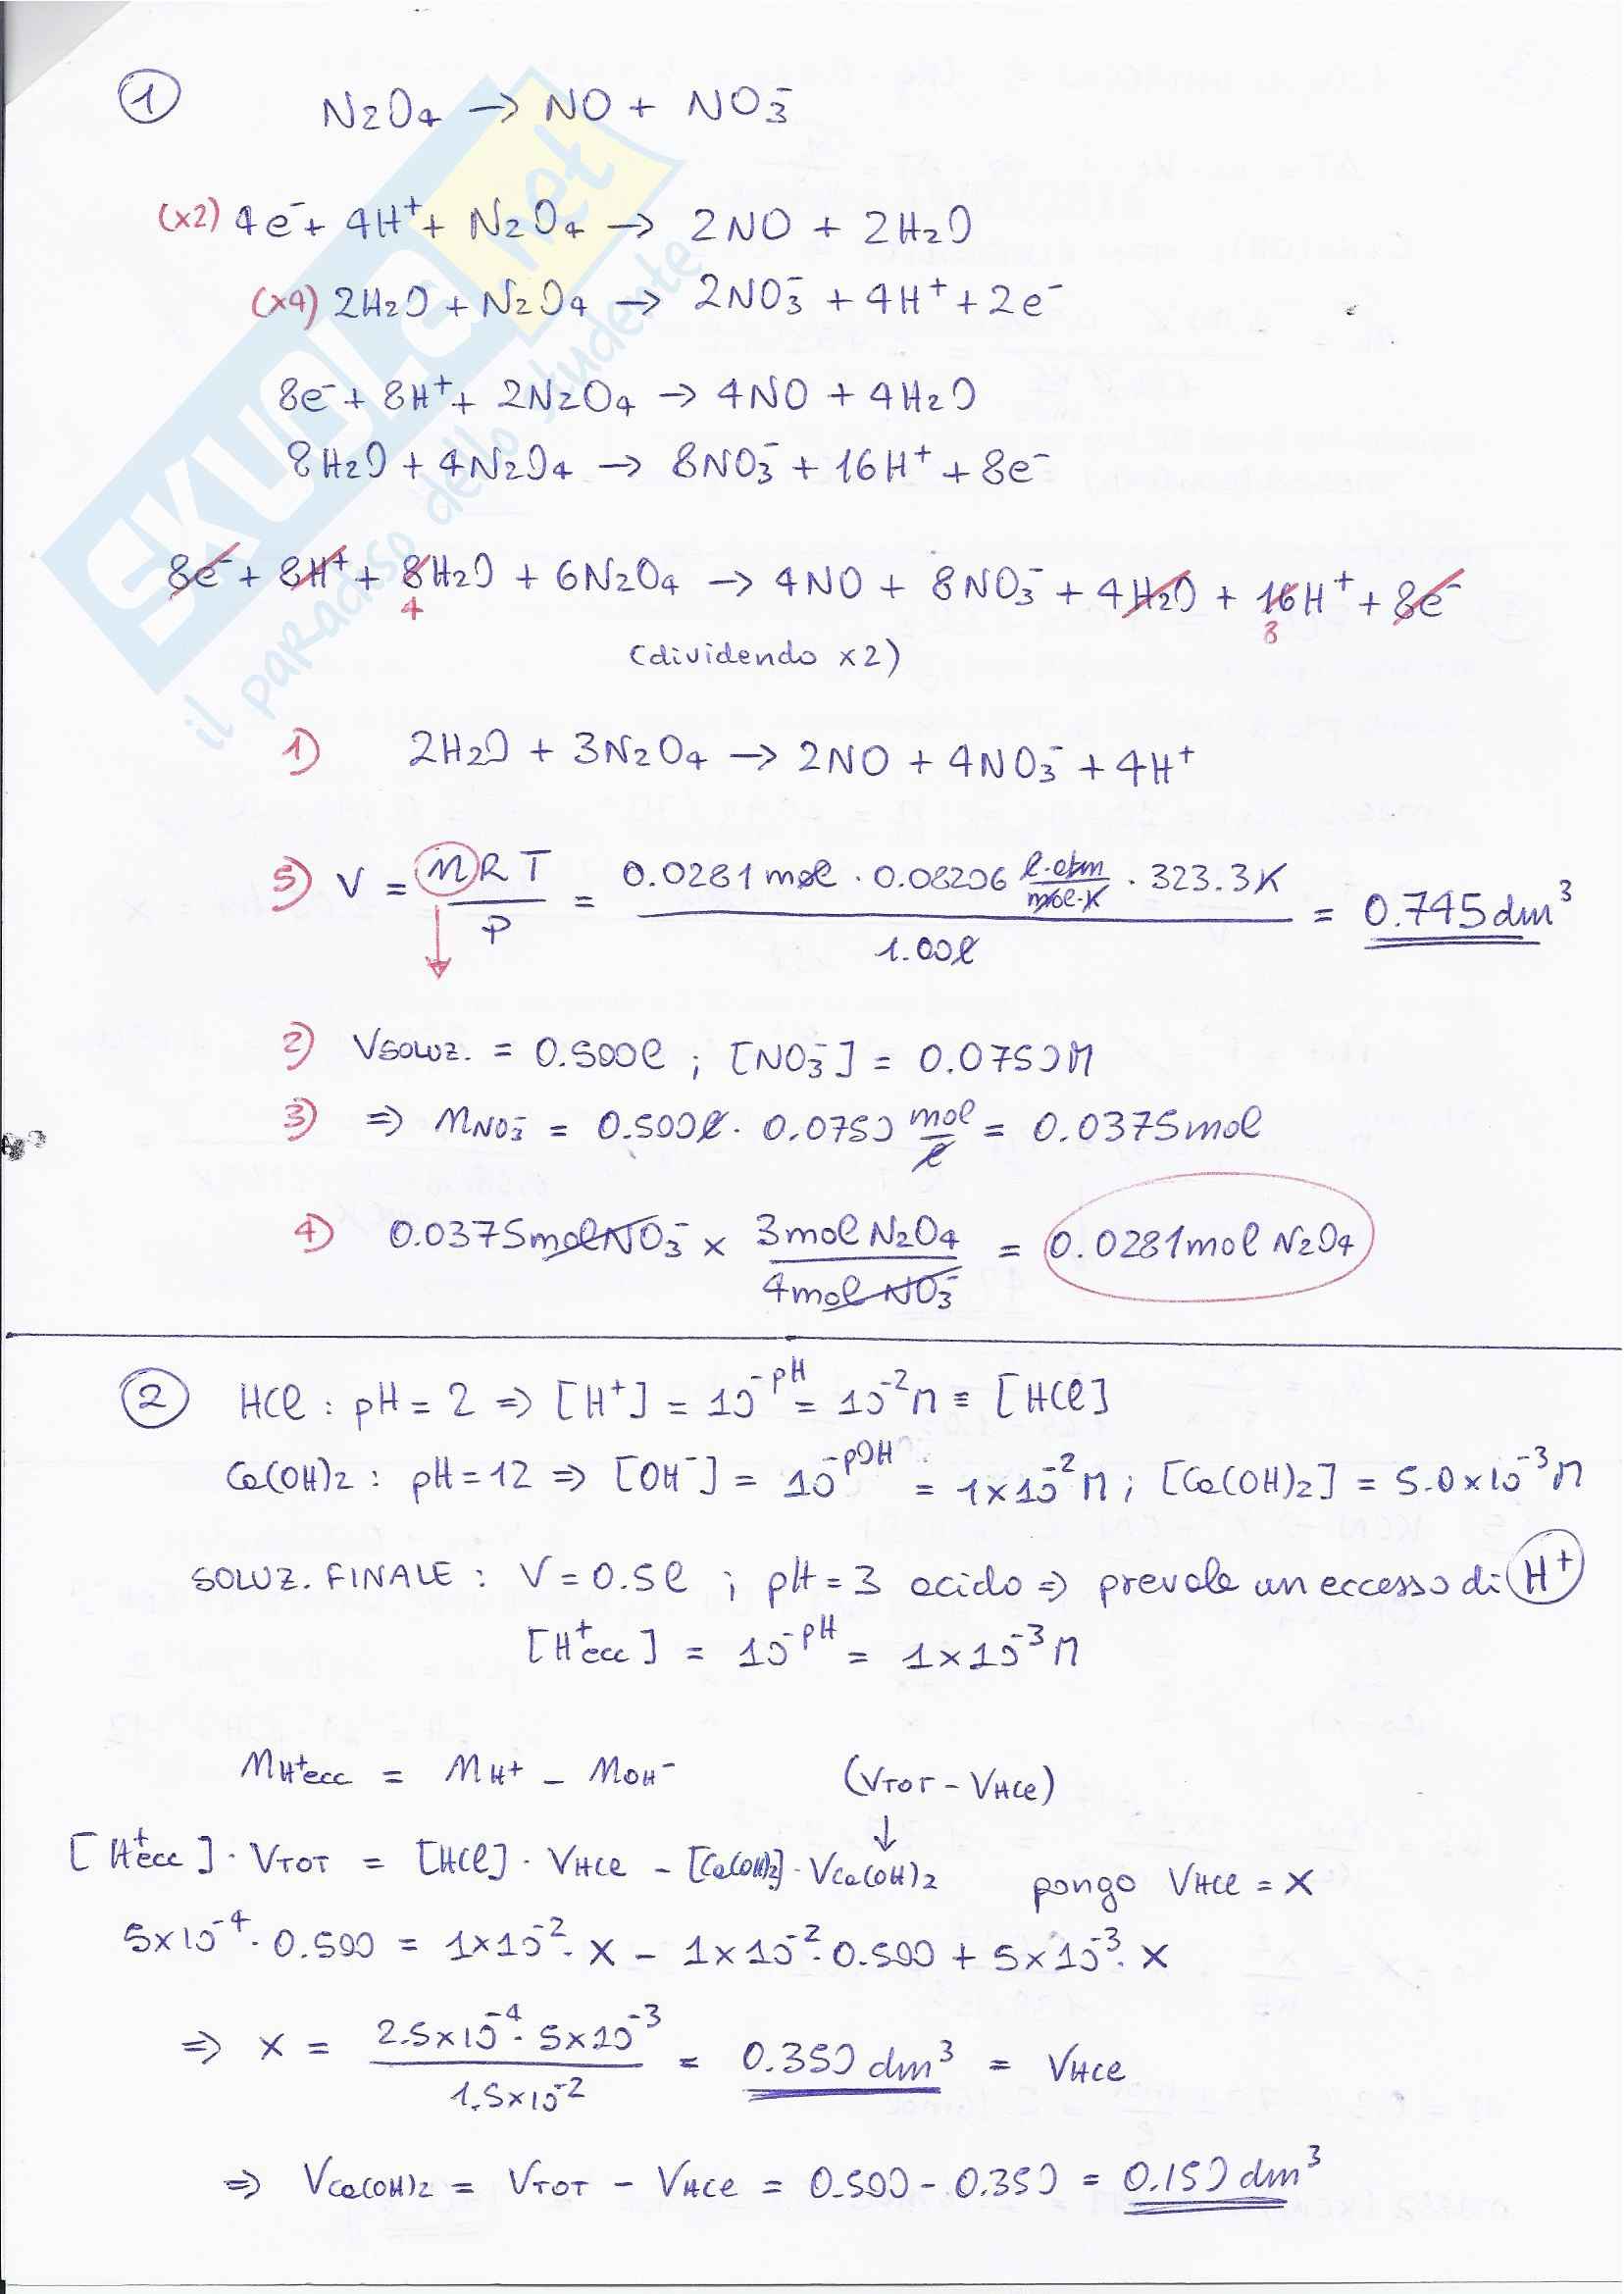 1 N2O4 → NO + NO3⁻
(x2) 4e⁻ + 4H⁺ + N2O4 → 2NO + 2H2O
(x4) 2H2O + N2O4 → 2NO3⁻ + 4H⁺ + 2e⁻
8e⁻ + 8H⁺ + 2N2O4 → 4NO + 4H2O
8H2O + 4N2O4 → 8NO3⁻ + 16H⁺ + 8e⁻
8e⁻ + 8H⁺ + 8H2O + 6N2O4 → 4NO + 8NO3⁻ + 4H2O + 16H⁺ + 8e⁻
4 8
(dividendo x2)
1) 2H2O + 3N2O4 → 2NO + 4NO3⁻ + 4H⁺
5) V = nRT / P = 0.0281 mol · 0.08206 l·atm/mol·K · 323.3K / 1.00l = 0.745 dm³
2) VSOLUZ. = 0.500l ; [NO3⁻] = 0.0750M
3) ⇒ nNO3⁻ = 0.500l · 0.0750 mol/l = 0.0375mol
4) 0.0375molNO3⁻ x 3mol N2O4 / 4mol NO3⁻ = 0.0281mol N2O4
2 HCl : pH = 2 ⇒ [H⁺] = 10^-pH = 10^-2 M ≡ [HCl]
Ca(OH)2 : pH = 12 ⇒ [OH⁻] = 10^-pOH = 1x10^-2 M ; [Ca(OH)2] = 5.0x10^-3 M
SOLUZ. FINALE : V = 0.5l ; pH = 3 acido ⇒ prevale un eccesso di H⁺
[H⁺ecc] = 10^-pH = 1x10^-3 M
nH⁺ecc = nH⁺ - nOH⁻ (VTOT - VHCl)
↓
[H⁺ecc] · VTOT = [HCl] · VHCl - [Ca(OH)2] · VCa(OH)2 pongo VHCl = x
5x10^-4 · 0.500 = 1x10^-2 · x - 1x10^-2 · 0.500 + 5x10^-3 · x
⇒ x = 2.5x10^-4 · 5x10^-3 / 1.5x10^-2 = 0.350 dm³ = VHCl
⇒ VCa(OH)2 = VTOT - VHCl = 0.500 - 0.350 = 0.150 dm³
SKUOLA.net
il paradiso dello studente